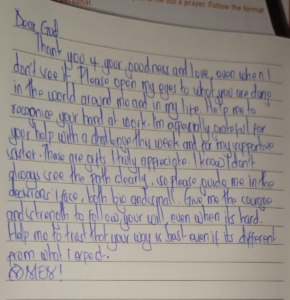 out a prayer. Follow the format
Dear God
Thank you 4 your goodness and love, even when I
don't see it. Please open my eyes to what you are doing
in the world around me and in my life. Help me to
recognize your hand at work. I'm especially grateful for
your help with a challenge this week and for my supportive
sister. These are gifts I truly appreciate. I know I don't
always see the path clearly, so please guide me in the
decisions I face, both big and small. Give me the courage
and strength to follow your will, even when its hard.
Help me to trust that your way is best even if its different
from what I expect.
AMEN!